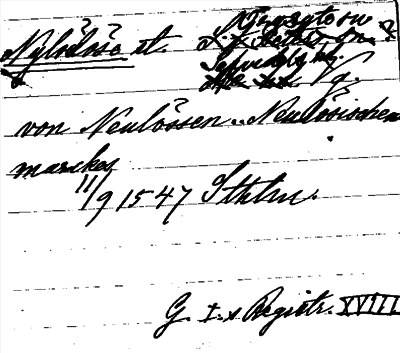 Nylödöse st.
Sävedals hd. Vg.
von Neulössen .. Neulösischen
marckes
11/9 1547 Sthlm.
G. I:s Registr. XVIII